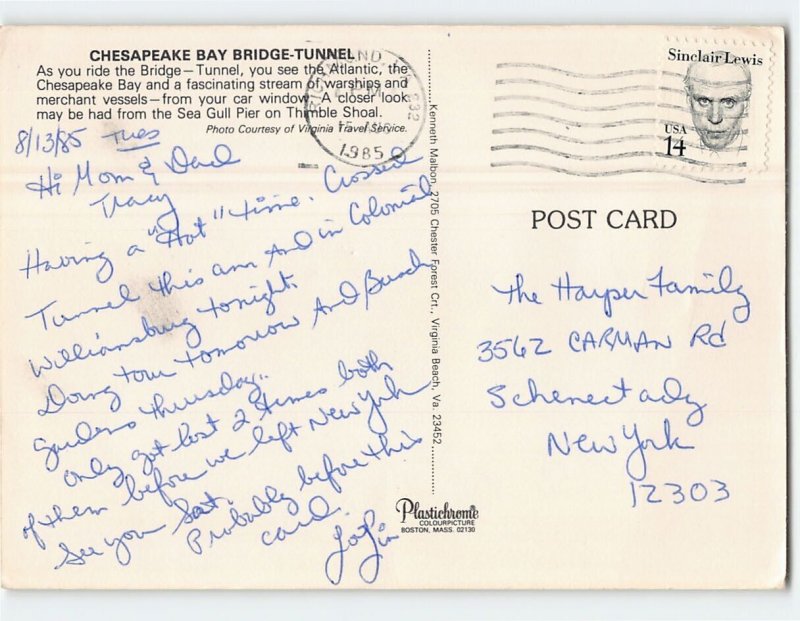 CHESAPEAKE BAY BRIDGE-TUNNEL
As you ride the Bridge—Tunnel, you see the Atlantic, the
Chesapeake Bay and a fascinating stream of warships and
merchant vessels—from your car window. A closer look
may be had from the Sea Gull Pier on Thimble Shoal.
Photo Courtesy of Virginia Travel Service.
8/13/85 Tues
Hi Mom & Dad
Tracy
Having a "Hot" time. Crossed
Tunnel this am And in Colonial
Williamsburg tonight.
Doing tour tomorrow And Busch
Gardens thursday..
Only got lost 2 times both
of them before we left New York
See you Sat.
Probably before this
card.
Kenneth Malbon, 2705 Chester Forest Crt., Virginia Beach, Va. 23452
Plastichrome
COLOURPICTURE
BOSTON, MASS. 02130
PM
1985
Sinclair Lewis
USA
14
POST CARD
The Harper Family
3562 CARMAN Rd
Schenectady
New York
12303